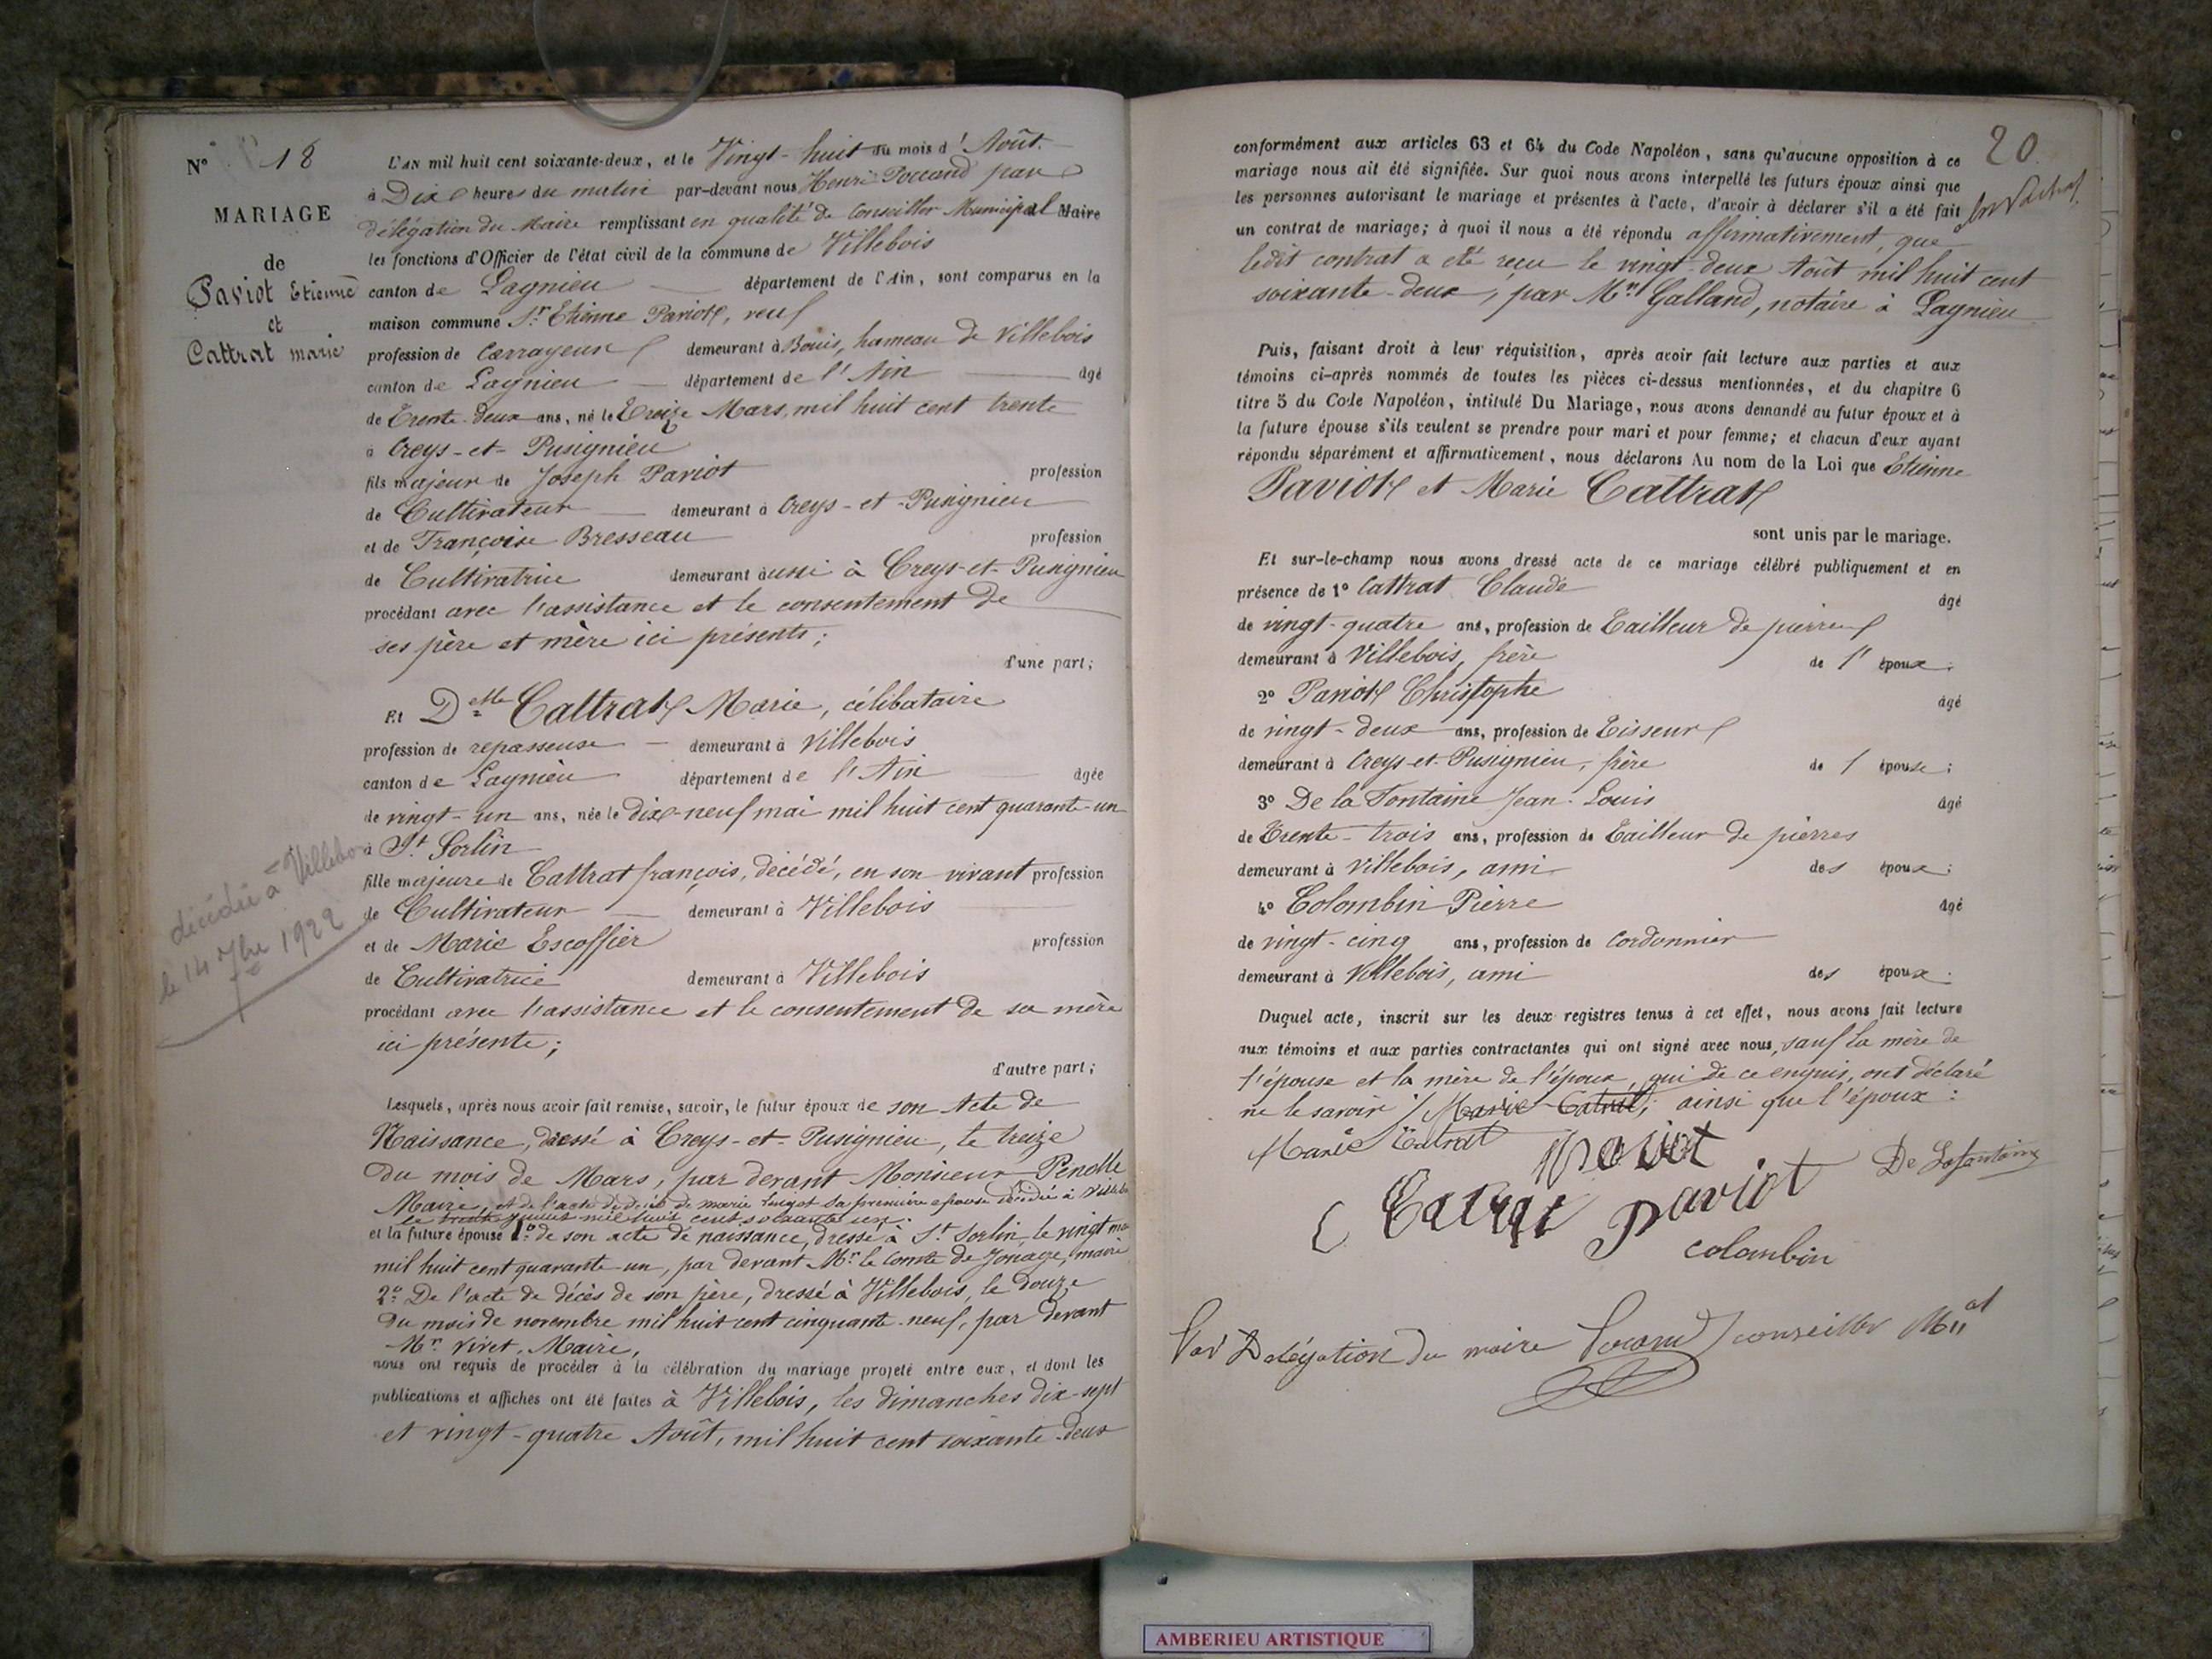 N° 18
MARIAGE
de
Paviot Etienne
et
Cattrat marie
décédée à Villebois
le 14 7bre 1922
L'AN mil huit cent soixante-deux, et le Vingt-huit du mois d'Août.
à Dix heures du matin par-devant nous Henri Poccand par
délégation du Maire remplissant en qualité de Conseiller Municipal Maire
les fonctions d'Officier de l'état civil de la commune de Villebois
canton de Lagnieu département de l'Ain, sont comparus en la
maison commune Sr. Etienne Paviot, veuf
profession de Carrayeur demeurant à Bouis, hameau de Villebois
canton de Lagnieu département de l'Ain âgé
de Trente-deux ans, né le Treize Mars, mil huit cent trente
à Creys-et-Pusignieu
fils majeur de Joseph Paviot profession
de Cultivateur demeurant à Creys-et-Pusignieu
et de Françoise Bresseau profession
de Cultivatrice demeurant aussi à Creys-et-Pusignieu
procédant avec l'assistance et le consentement de
ses père et mère ici présents;
d'une part;
Et Delle Cattrat Marie, célibataire
profession de repasseuse demeurant à Villebois
canton de Lagnieu département de l'Ain âgée
de vingt-un ans, née le dix-neuf mai mil huit cent quarante-un
à St. Sorlin
fille majeure de Cattrat françois, décédé, en son vivant profession
de Cultivateur demeurant à Villebois
et de Marie Escoffier profession
de Cultivatrice demeurant à Villebois
procédant avec l'assistance et le consentement de sa mère
ici présente;
d'autre part;
Lesquels, après nous avoir fait remise, savoir, le futur époux de son Acte de
Naissance, dressé à Creys-et-Pusignieu, le treize
du mois de Mars, par devant Monsieur
Maire, et de l'acte de décès de marie sa première épouse décédée à Villebois
le trente juillet mil huit cent soixante un.
et la future épouse 1° de son acte de naissance, dressé à St. Sorlin, le vingt mai
mil huit cent quarante-un, par devant Mr. le Comte de Jonage, maire
2° De l'acte de décès de son père, dressé à Villebois, le douze
du mois de novembre mil huit cent cinquante-neuf, par devant
Mr. Vivet, Maire,
nous ont requis de procéder à la célébration du mariage projeté entre eux, et dont les
publications et affiches ont été faites à Villebois, les dimanches dix-sept
et vingt-quatre Août, mil huit cent soixante-deux
20.
conformément aux articles 63 et 64 du Code Napoléon, sans qu'aucune opposition à ce
mariage nous ait été signifiée. Sur quoi nous avons interpellé les futurs époux ainsi que
les personnes autorisant le mariage et présentes à l'acte, d'avoir à déclarer s'il a été fait
un contrat de mariage; à quoi il nous a été répondu affirmativement, que
ledit contrat a été reçu le vingt-deux Août mil huit cent
soixante-deux, par Mr. Galland, notaire à Lagnieu
Puis, faisant droit à leur réquisition, après avoir fait lecture aux parties et aux
témoins ci-après nommés de toutes les pièces ci-dessus mentionnées, et du chapitre 6
titre 5 du Code Napoléon, intitulé Du Mariage, nous avons demandé au futur époux et à
la future épouse s'ils veulent se prendre pour mari et pour femme; et chacun d'eux ayant
répondu séparément et affirmativement, nous déclarons Au nom de la Loi que Etienne
Paviot et Marie Cattrat
sont unis par le mariage.
Et sur-le-champ nous avons dressé acte de ce mariage célébré publiquement et en
présence de 1° Cattrat Claude âgé
de vingt-quatre ans, profession de Tailleur de pierre
demeurant à Villebois, frère de l' époux;
2° Paviot Christophe âgé
de vingt-deux ans, profession de Tisseur
demeurant à Creys-et-Pusignieu, frère de l épouse;
3° De la Fontaine Jean-Louis âgé
de Trente-trois ans, profession de Tailleur de pierres
demeurant à Villebois, ami des époux;
4° Colombin Pierre âgé
de vingt-cinq ans, profession de Cordonnier
demeurant à Villebois, ami des époux.
Duquel acte, inscrit sur les deux registres tenus à cet effet, nous avons fait lecture
aux témoins et aux parties contractantes qui ont signé avec nous, sauf la mère de
l'épouse et la mère de l'époux, qui de ce enquis, ont déclaré
ne le savoir / Marie Catrat, ainsi que l'époux:
Marie Catrat Paviot
C Catrat Paviot De Lafontaine
Colombin
Par Délégation du maire Pocand conseiller Mal
AMBERIEU ARTISTIQUE